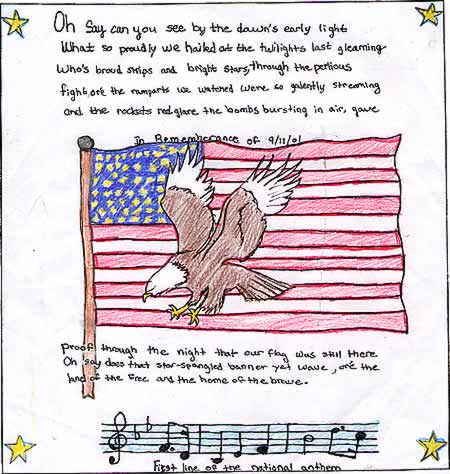 Oh Say can you see by the dawn's early light
What so proudly we hailed at the twilights last gleaming
Who's broud strips and bright stars, through the perlious
fight, ore the ramparts we watched were so galently streaming
and the rockets red glare the bombs bursting in air, gave
In Rememberance of 9/11/01
proof through the night that our flag was still there
Oh say does that star-spangled banner yet wave, ore the
land of the Free and the home of the brave.
First line of the national anthem